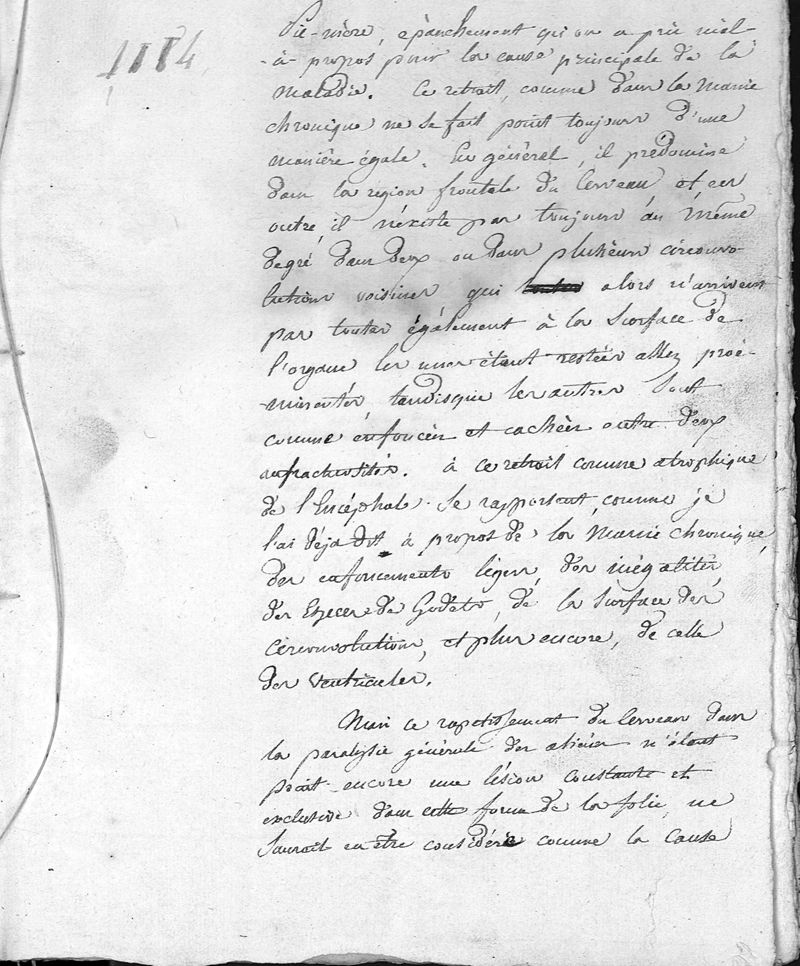 Pie-mère, épanchement qu'on a pris mal-
-à-propos pour la cause principale de la
maladie. Ce retrait, comme dans la manie
chronique ne se fait point toujours d'une
manière égale. En général, il prédomine
dans la région frontale du Cerveau et, en
outre, il n'éxiste pas toujours au même
degré dans deux ou dans plusieurs circonvo-
lutions voisines qui alors n'arrivent
pas toutes également à la Surface de
l'organe les unes étant restées assez proé-
-minentes tandisque les autres Sont
comme enfoncées et cachées entre deux
anfractuosités. à ce retrait comme atrophique
de l'Encéphale se rapportent, comme je
l'ai déja dit à propos de la Manie chronique,
des enfoncements légers, des inégalités
des Especes de Godets, de la Surface des
Circonvolutions, et plus encore, de celle
des Ventricules.
Mais ce rapetissement du Cerveau dans
la paralysie générale des aliénés n'étant
point encore une lésion constante et
exclusive dans cette forme de la folie, ne
Saurait en être considéré comme la Cause